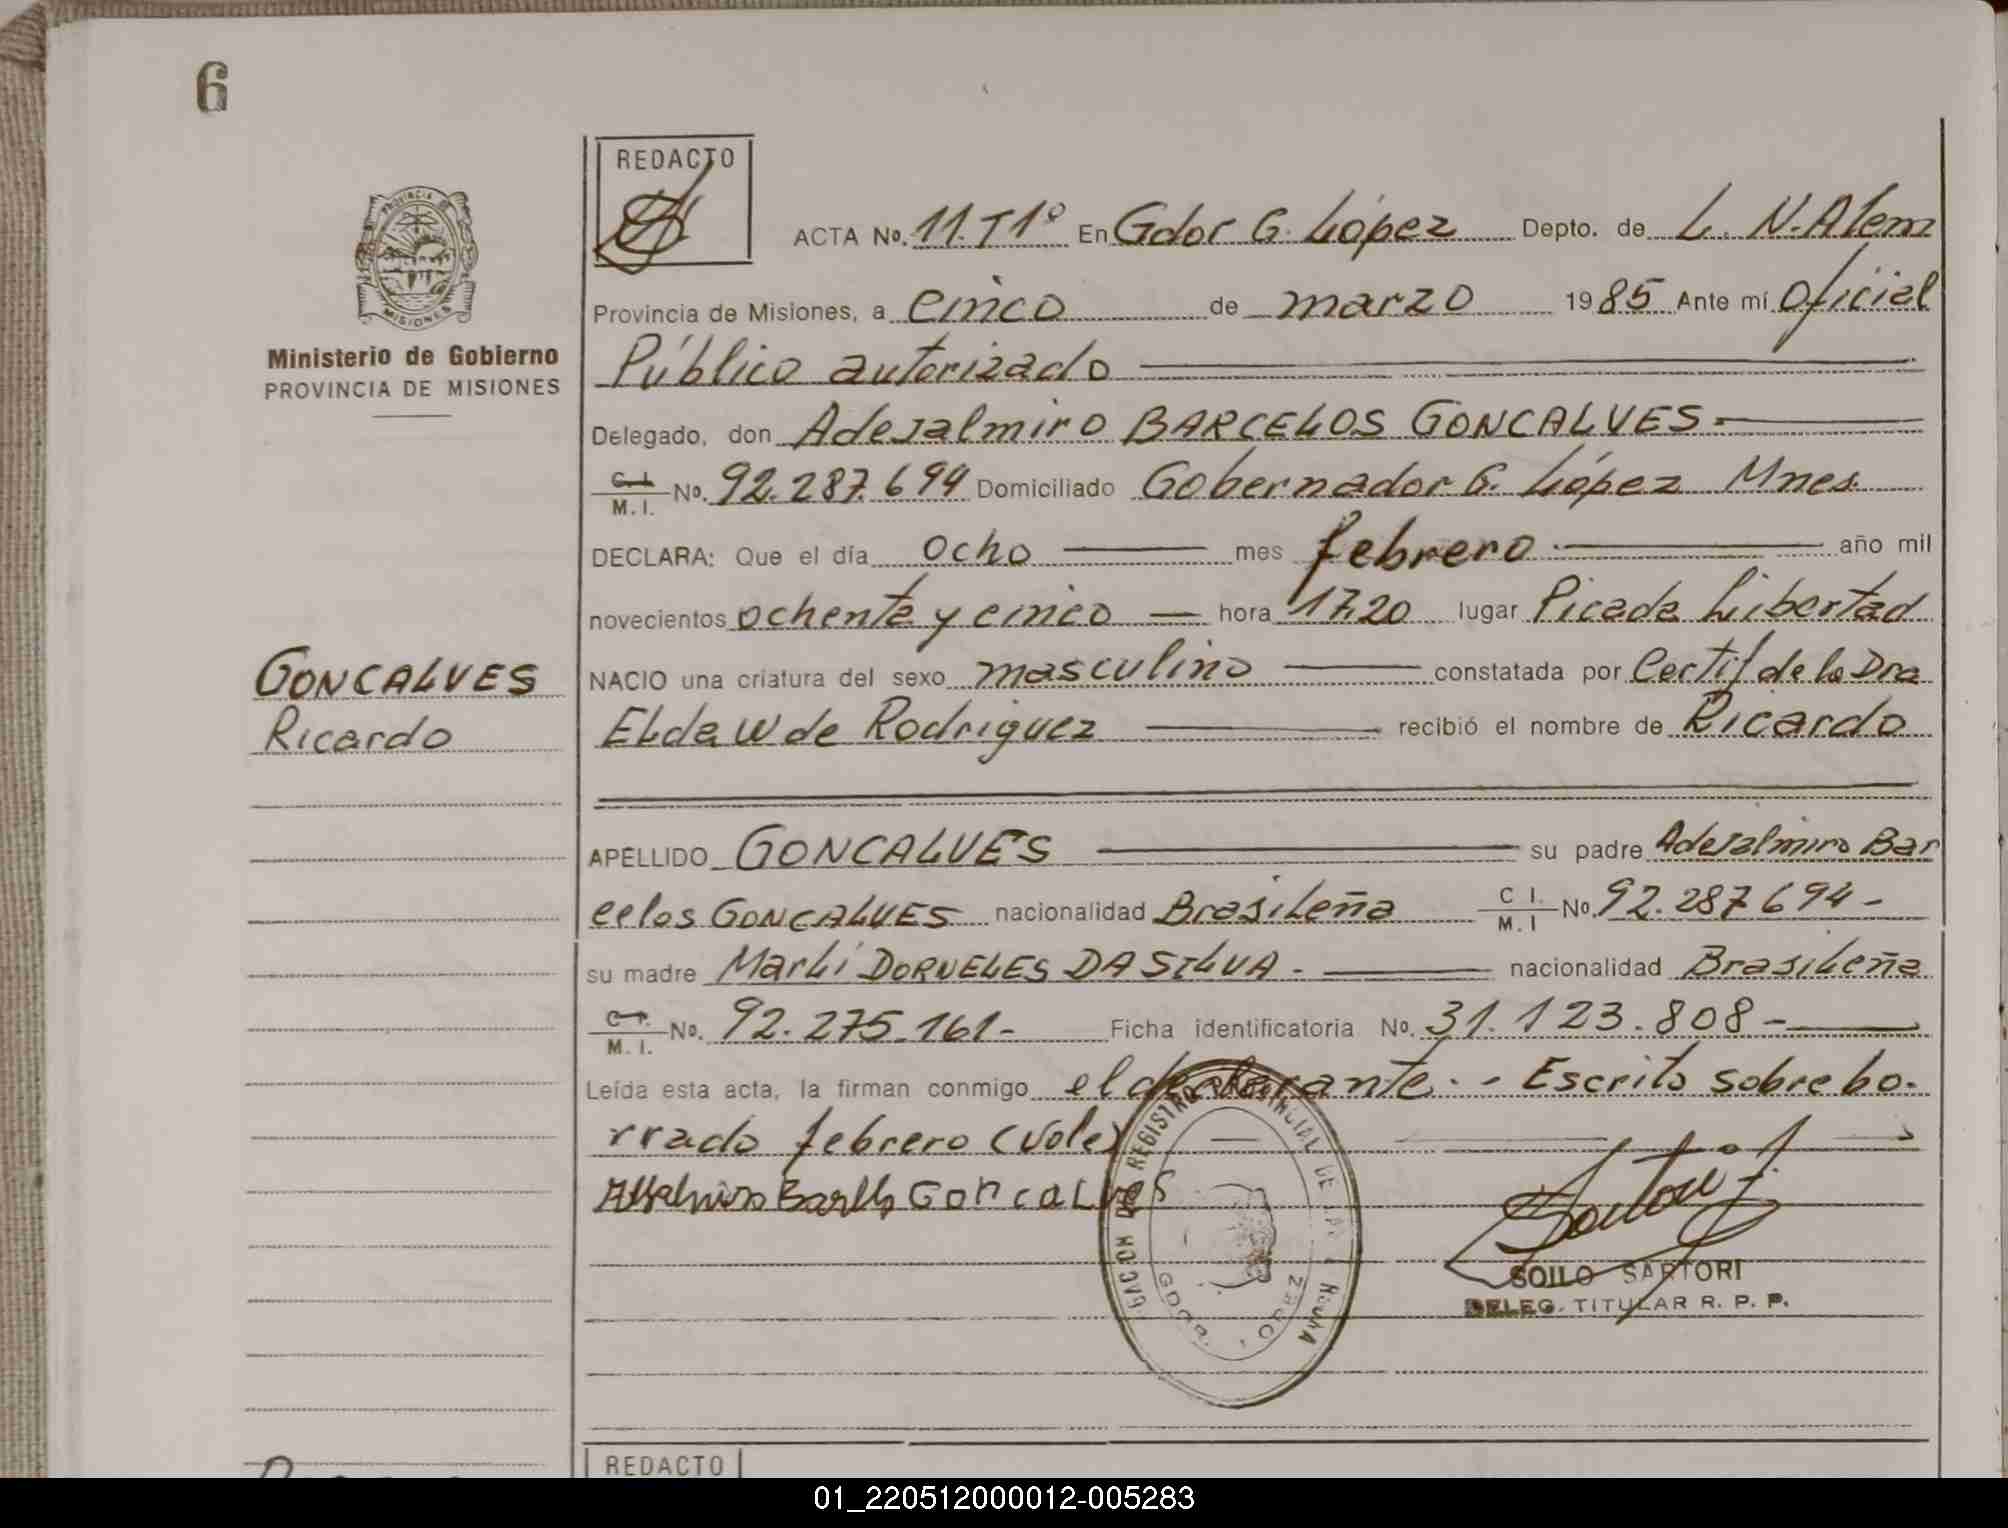 6
REDACTO
ACTA No. 11. T 1º En Gdor G. López Depto. de L. N. Alem
Provincia de Misiones, a cinco de marzo 1985 Ante mí Oficial
Público autorizado
Delegado, don Adejalmiro BARCELOS GONCALVES.
C.I. M.I. No. 92.287.694 Domiciliado Gobernador G. López Mnes.
DECLARA: Que el día ocho mes febrero. año mil
novecientos ochenta y cinco hora 17,20 lugar Picada Libertad
NACIO una criatura del sexo masculino constatada por Certif de la Dra
Elda W de Rodriguez recibió el nombre de Ricardo
APELLIDO GONCALVES su padre Adejalmiro Bar
celos GONCALVES nacionalidad Brasileña C I. M. I No. 92.287.694-
su madre Marli DORNELES DA SILVA. nacionalidad Brasileña
C.I. M. I. No. 92.275.161- Ficha identificatoria No. 31.123.808-
Leída esta acta, la firman conmigo el declarante.- Escrito sobre bo-
rrado febrero (Vale)
Barcellos GonCaLves
PROVINCIA DE
MISIONES
Ministerio de Gobierno
PROVINCIA DE MISIONES
GONCALVES
Ricardo
REGISTRO PROVINCIAL DE LAS
GDOR. LOPEZ
Sartori
SOILO SARTORI
DELEG. TITULAR R. P. P.
REDACTO
01_220512000012-005283